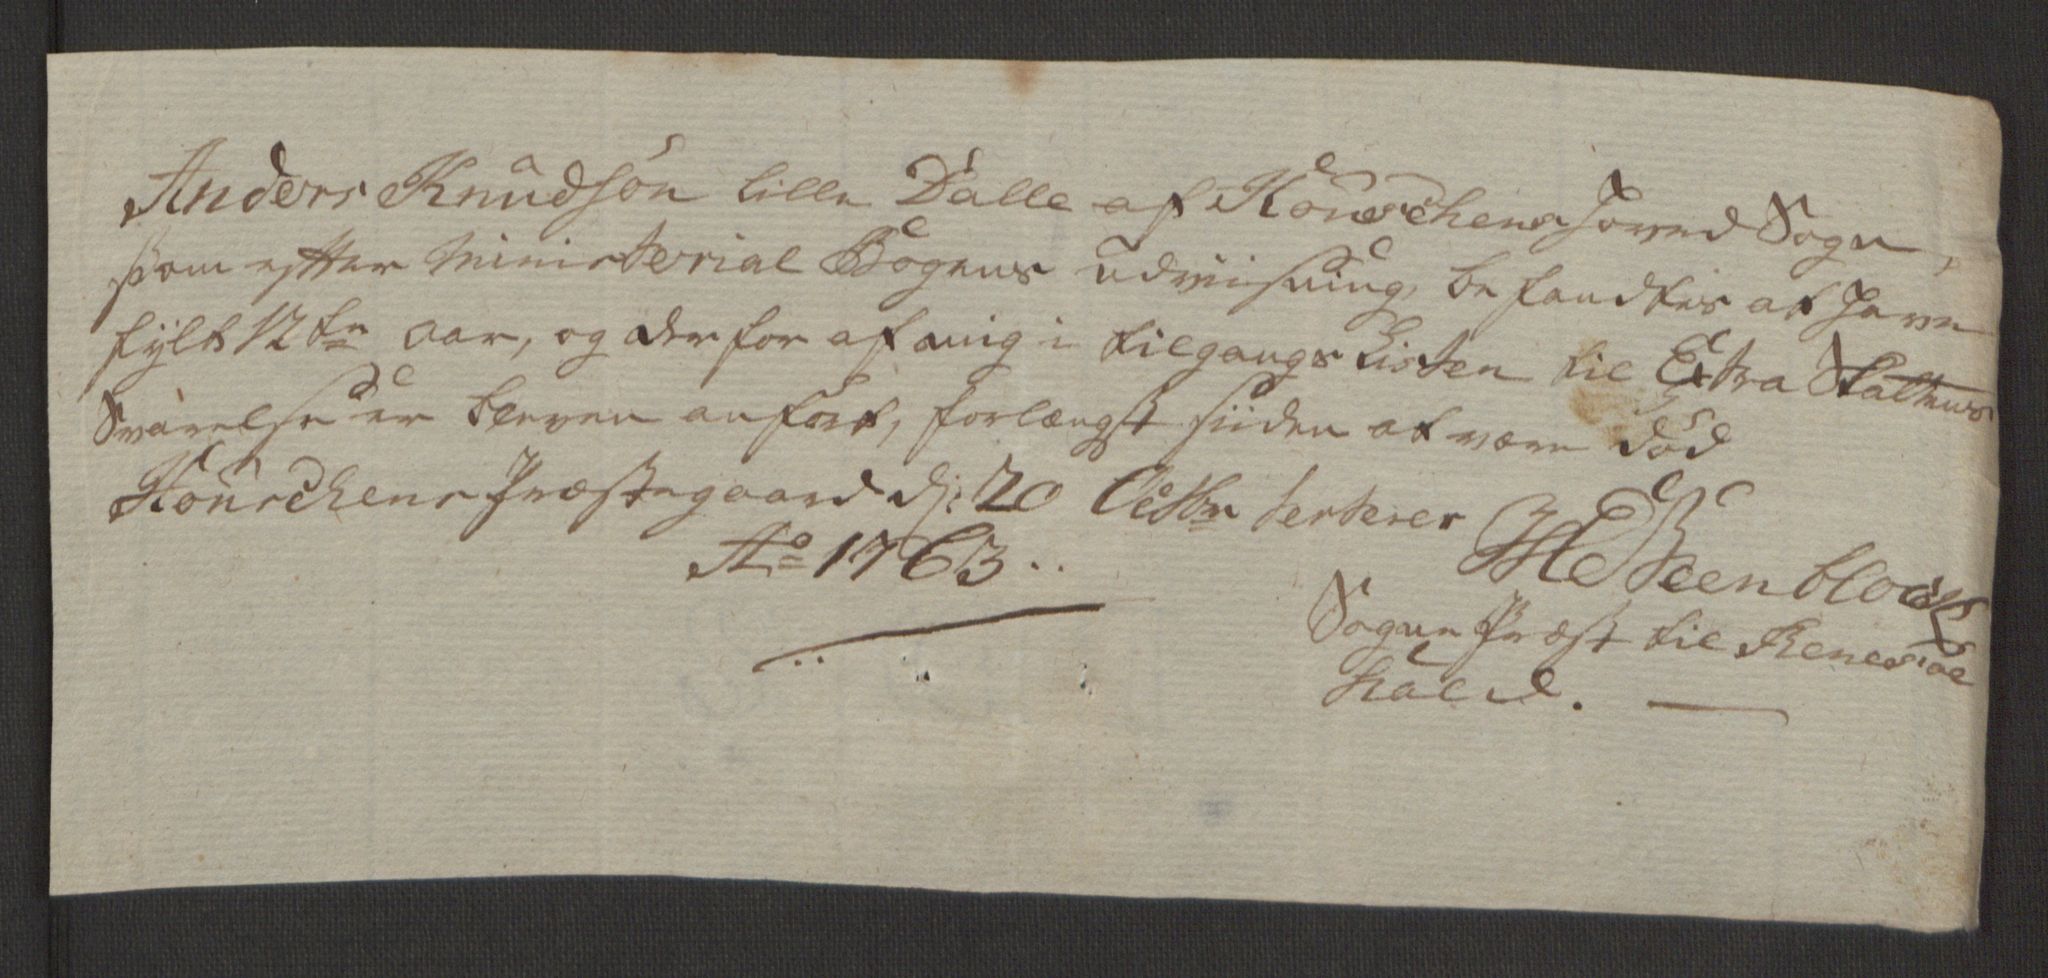 Anders Knudsøn lille Dalle af Kourschens Hoved Sogn,
som efter Ministerial Bogens udviisning, befandtes at have
fylt 12te aar, og derfor af mig i tilgangs Listen til Extra Skattens
Svarelse er bleven anført, forlængst siden at være død
Kourschens Præstegaard d: 20 Octbr tertecer
Ao 1763..
H Steenblock
Sogne Præst til
Kald.